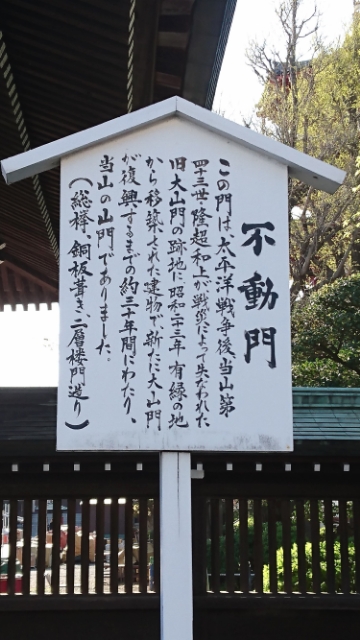 不動門
この門は、太平洋戦争後、当山第
四十三世隆超和上が戦災によって失なわれた
旧大山門の跡地に昭和二十三年、有縁の地
から移築された建物で、新たに大山門
が復興するまでの約三十年間にわたり、
当山の山門でありました。
（総欅、銅板葺き、二層楼門造り）